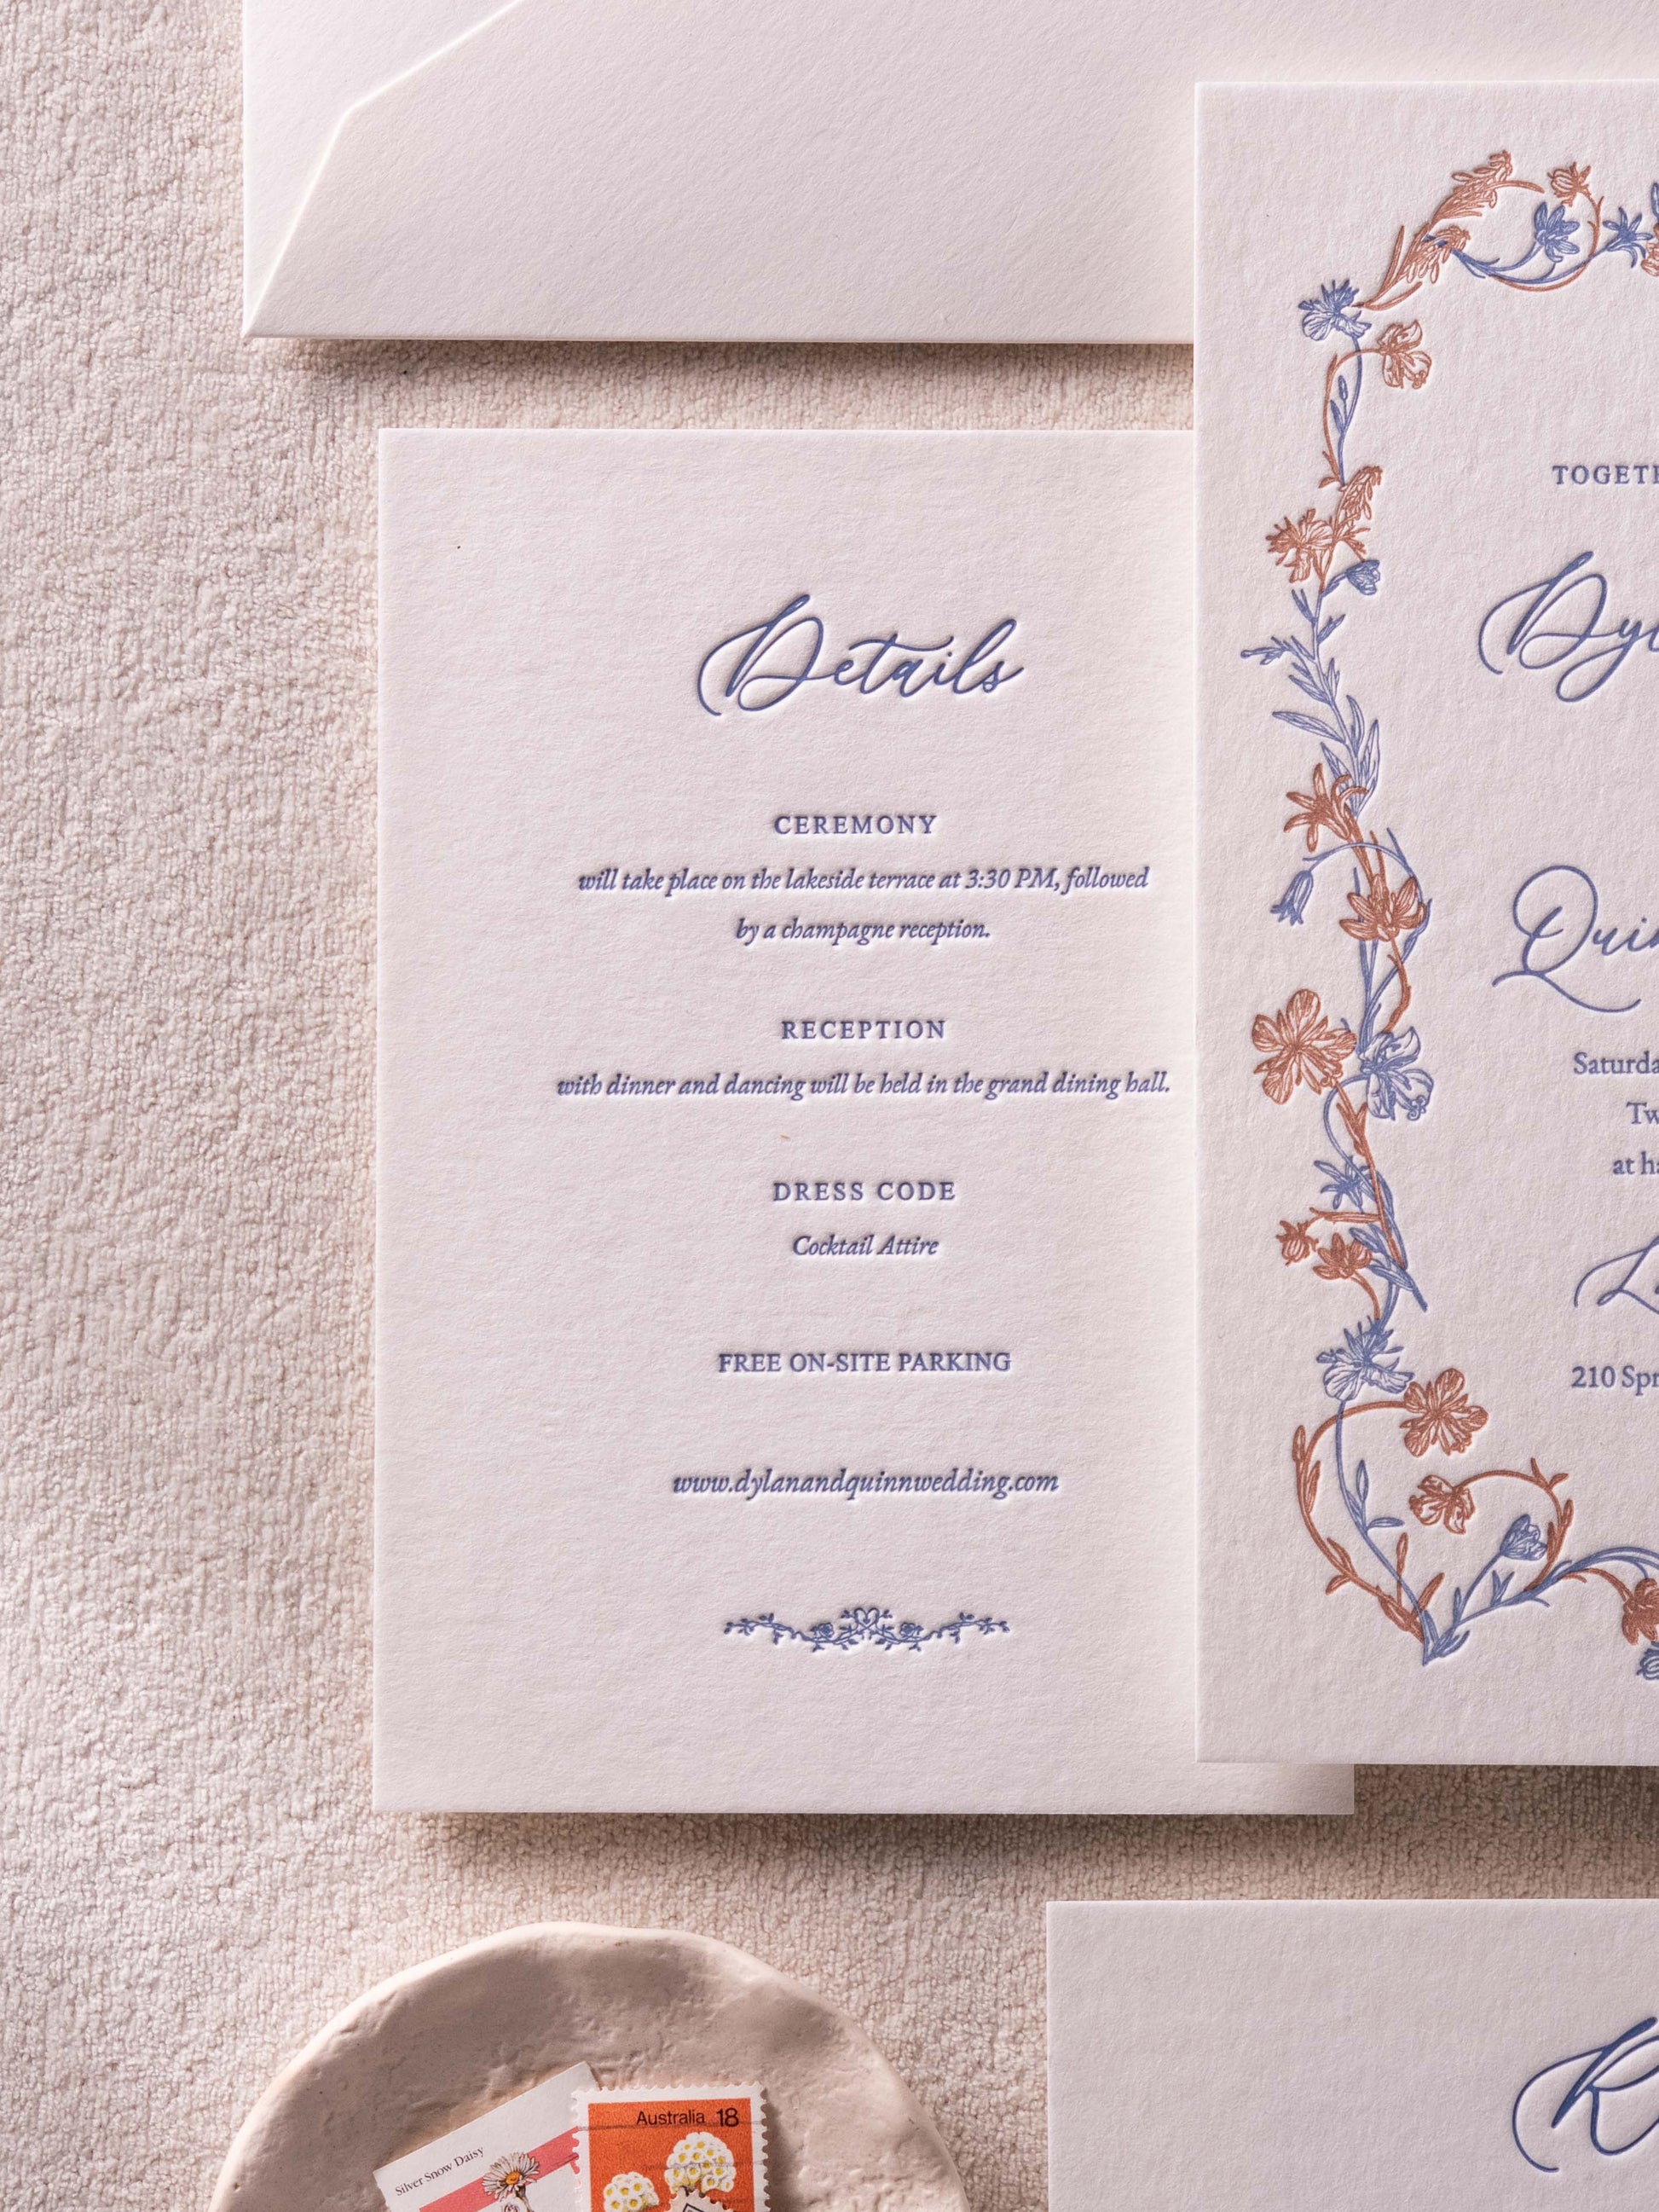 Details
CEREMONY
will take place on the lakeside terrace at 3:30 PM, followed
by a champagne reception.
RECEPTION
with dinner and dancing will be held in the grand dining hall.
DRESS CODE
Cocktail Attire
FREE ON-SITE PARKING
www.dylanandquinnwedding.com
210
Australia 18
Silver Snow Daisy